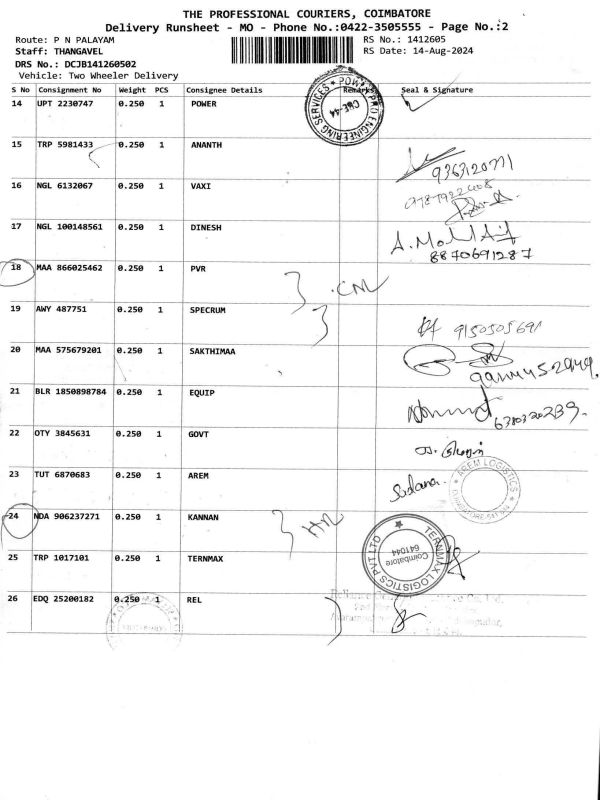 THE PROFESSIONAL COURIERS, COIMBATORE
Delivery Runsheet - MO - Phone No.:0422-3505555 - Page No.:2
Route: P N PALAYAM RS No.: 1412605
Staff: THANGAVEL RS Date: 14-Aug-2024
DRS No.: DCJB141260502
Vehicle: Two Wheeler Delivery
S No Consignment No Weight PCS Consignee Details Remarks Seal & Signature
14 UPT 2230747 0.250 1 POWER
POWER PRO ENGINEERING SERVICES
CBE-44
15 TRP 5981433 0.250 1 ANANTH
16 NGL 6132067 0.250 1 VAXI
17 NGL 100148561 0.250 1 DINESH
8870691287
18 MAA 866025462 0.250 1 PVR
19 AWY 487751 0.250 1 SPECRUM
9150505691
20 MAA 575679201 0.250 1 SAKTHIMAA
21 BLR 1850898784 0.250 1 EQUIP
6380320239
22 OTY 3845631 0.250 1 GOVT
23 TUT 6870683 0.250 1 AREM
AREM LOGISTICS
24 NDA 906237271 0.250 1 KANNAN
25 TRP 1017101 0.250 1 TERNMAX
TERNMAX LOGISTICS PVT LTD
Coimbatore
641044
26 EDQ 25200182 0.250 1 REL